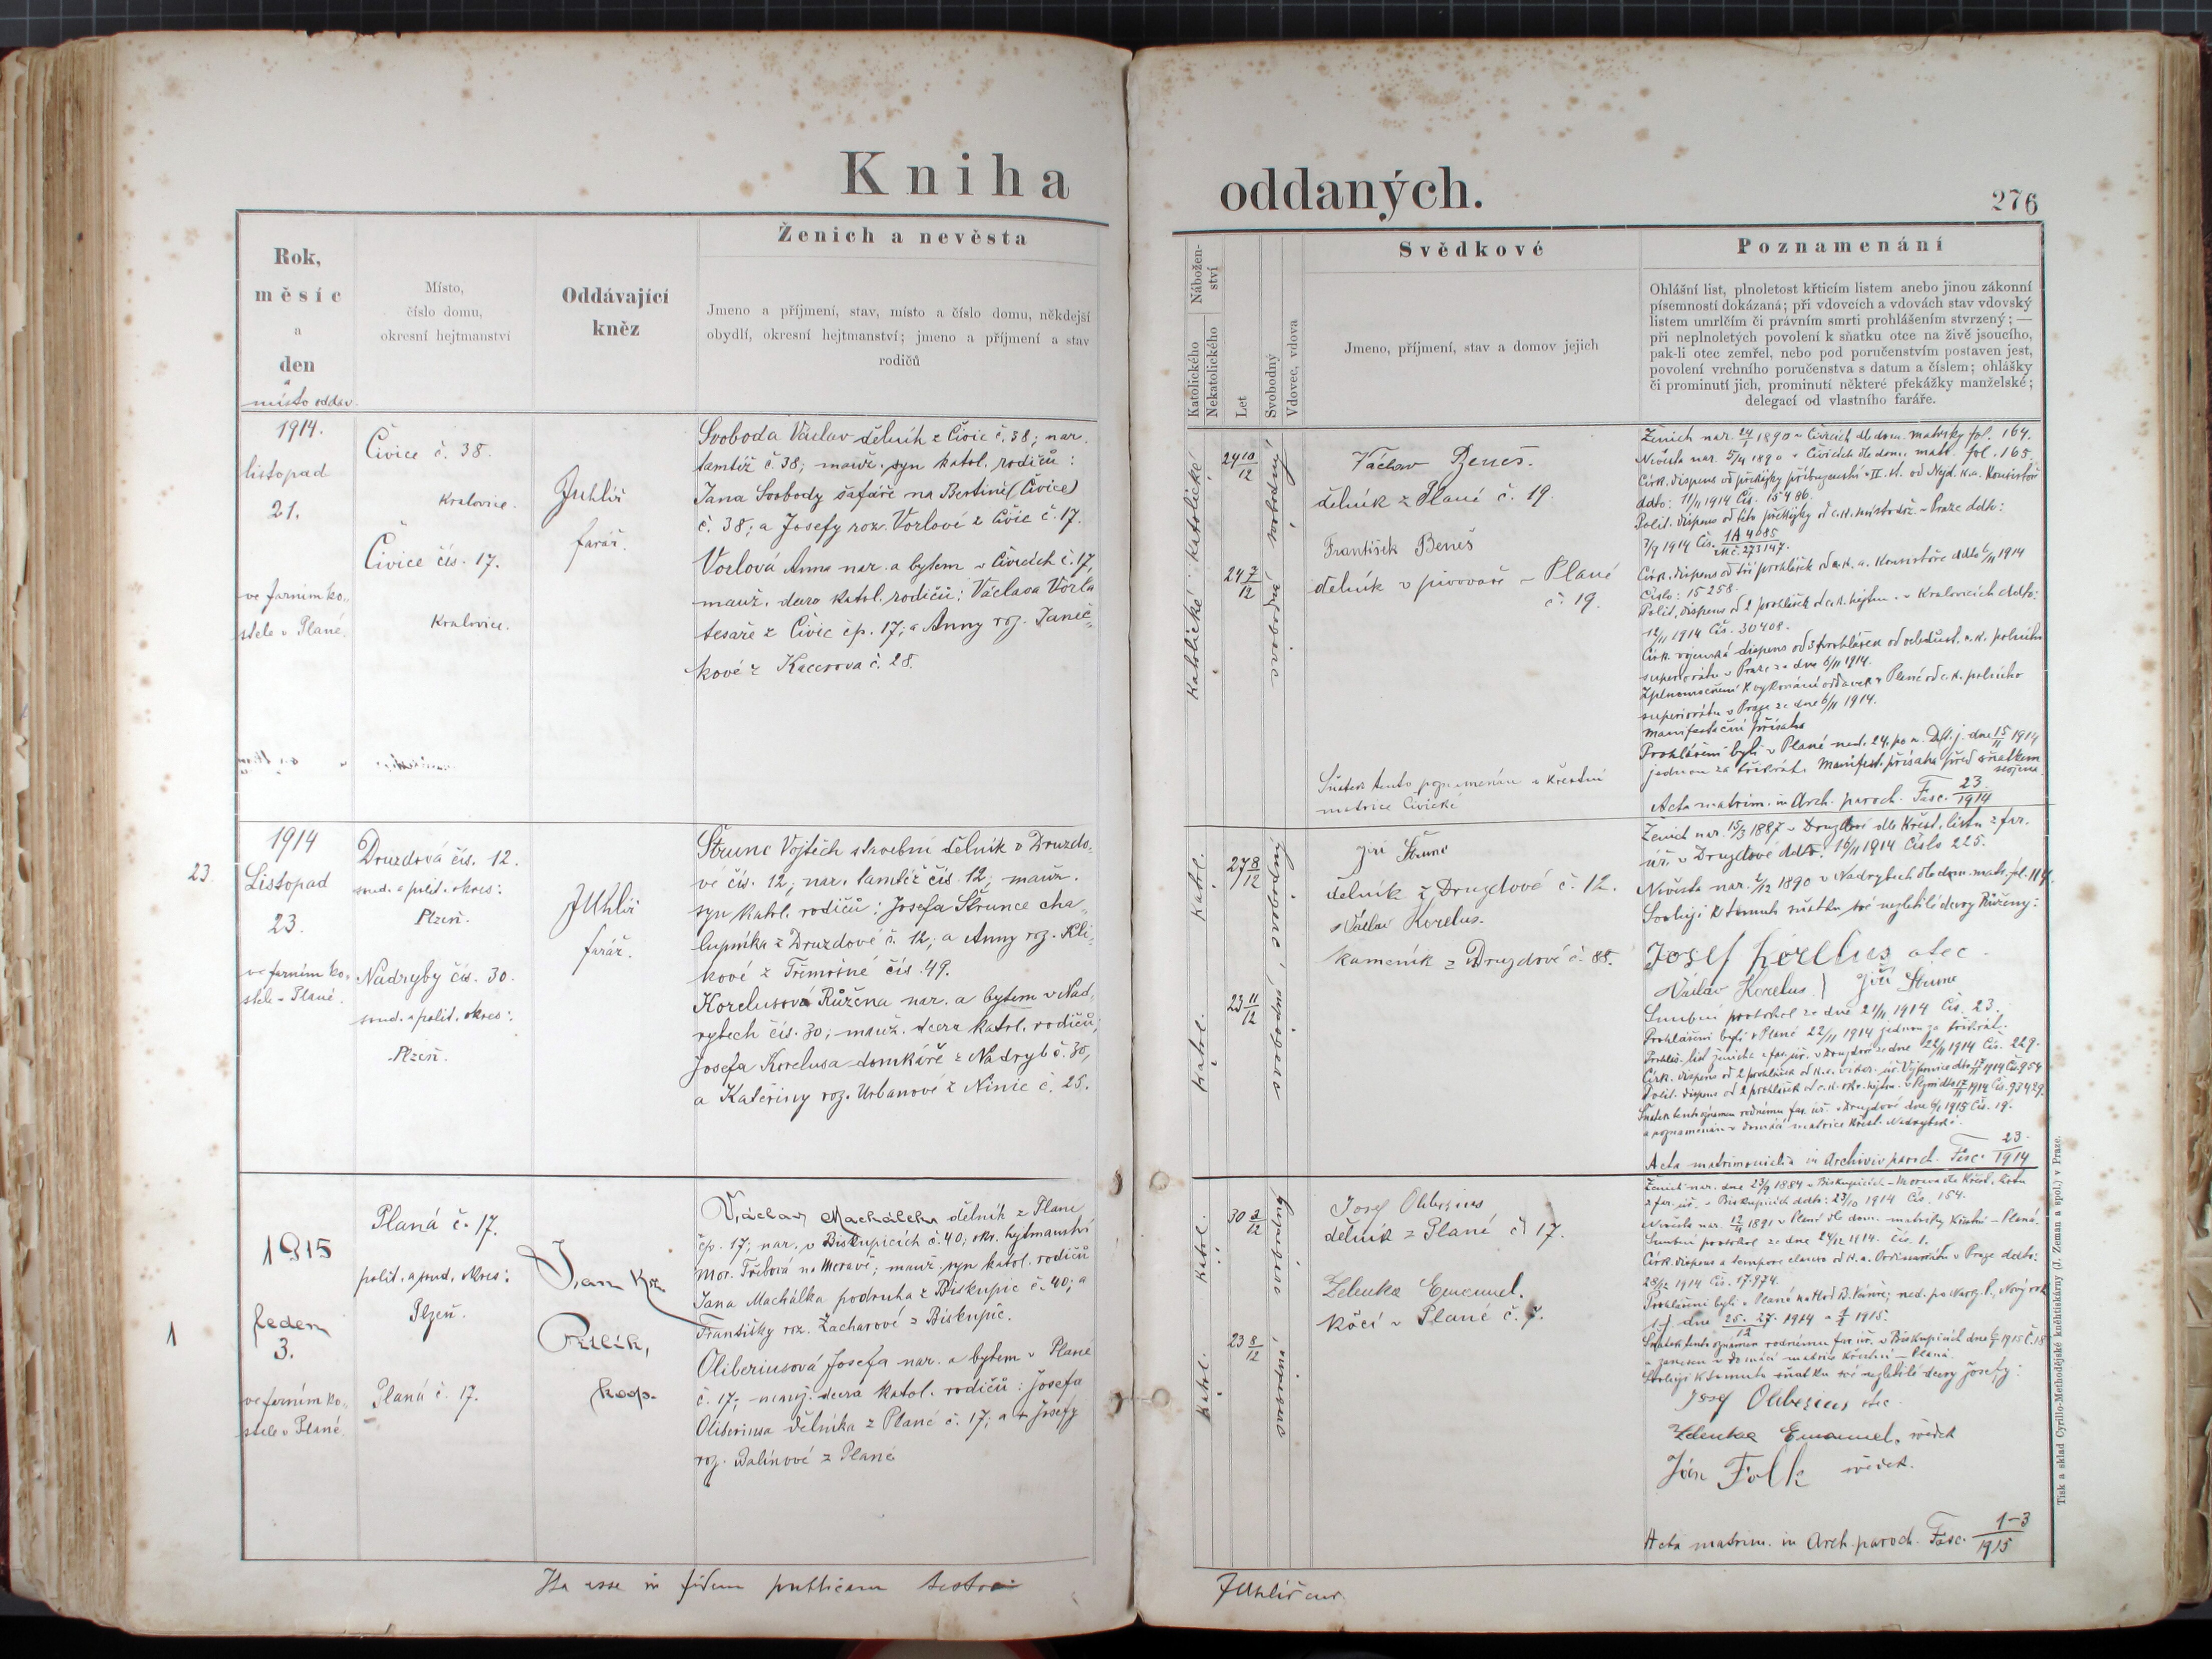 Kniha
oddaných.
276
Rok,
měsíc
a
den
místo oddav.
Místo,
číslo domu,
okresní hejtmanství
Oddávající
kněz
Ženich a nevěsta
Jmeno a příjmení, stav, místo a číslo domu, někdejší
obydlí, okresní hejtmanství; jmeno a příjmení a stav
rodičů
Nábožen-
ství
Katolického
Nekatolického
Let
Svobodný
Vdovec, vdova
Svědkové
Jmeno, příjmení, stav a domov jejich
Poznamenání
Ohlášní list, plnoletost křticím listem anebo jinou zákonní
písemností dokázaná; při vdovcích a vdovách stav vdovský
listem umrlčím či právním smrti prohlášením stvrzený; —
při neplnoletých povolení k sňatku otce na živě jsoucího,
pak-li otec zemřel, nebo pod poručenstvím postaven jest,
povolení vrchního poručenstva s datum a číslem; ohlášky
či prominutí jich, prominutí některé překážky manželské;
delegací od vlastního faráře.
1914.
listopad
21.
ve farním ko-
stele v Plané.
Čivice č. 38.
Kralovice.
Čivice čís. 17.
Kralovice.
JUhlíř
farář.
Svoboda Václav dělník z Čivic č. 38; nar.
tamtéž č. 38; manž. syn katol. rodičů:
Jana Svobody šafáře na Bertině (Čivice)
č. 38; a Josefy roz. Vorlové z Čivic č. 17.
Vorlová Anna nar. a bytem v Čivicích č. 17,
manž. dcera katol. rodičů: Václava Vorla
tesaře z Čivic čp. 17; a Anny roz. Janeč-
kové z Kaceřova č. 28.
Katolické
katolické
24 10/12
24 7/12
svobodný
svobodná
Václav Beneš.
dělník z Plané č. 19.
František Beneš
dělník v pivovaře v Plané
č. 19.
Sňatek tento poznamenán v křestní
matrice Čivické
Ženich nar. 24/1 1890 v Čivicích dle dom. matriky fol. 164.
Nevěsta nar. 5/4 1890 v Čivicích dle dom. matr. fol. 165.
Círk. dispens od překážky příbuzenství v II. st. od Nejd. k. a. Konsistoř
ddto: 11/11 1914 Čís. 15486.
Polit. dispens od této překážky od c. k. místodrž. v Praze ddto:
7/9 1914 Čís. 1A 4085
M č. 273147.
Círk. dispens od tří prohlášek od k. a. Konsistoře ddto 6/11 1914
Číslo: 15258.
Polit. dispens od 2 prohlášek od c. k. hejtm. v Kralovicích ddto:
12/11 1914 Čís. 30408.
superiorátu v Praze ze dne 6/11 1914.
Zplnomocnění k vykonání oddavek v Plané od c. k. polního
superiorátu v Praze ze dne 6/11 1914.
Manifestační přísaha
Prohlášeni byli v Plané ned. 24. po sv. Duchu t. j. dne 15/11 1914
jednou za třikrát. Manifest. přísaha před sňatkem
složena.
Acta matrim. in Arch. paroch. Fasc. 23/1914
23.
1914
Listopad
23.
ve farním ko-
stele v Plané.
Druzdová čís. 12.
soud. a polit. okres:
Plzeň.
Nadryby čís. 30.
soud. a polit. okres:
Plzeň.
JUhlíř
farář.
Štrunc Vojtěch stavební dělník v Druzdo-
vé čís. 12; nar. tamtéž čís. 12; manž.
syn katol. rodičů: Josefa Štrunce cha-
lupníka z Druzdové č. 12; a Anny roz. Kli-
kové z Třemošné čís. 49.
Korelusová Růžena nar. a bytem v Nad-
rybech čís. 30; manž. dcera katol. rodičů:
Josefa Korelusa domkáře z Nadryb č. 30,
a Kateřiny roz. Urbanové z Ninic č. 25.
katol.
katol.
27 8/12
23 11/12
svobodný
svobodná
Jiří Štrunc
dělník z Druzdové č. 12.
Václav Korelus.
kameník z Druzdové č. 88.
Ženich nar. 15/3 1887 v Druzdové dle křest. listu z far.
úř. v Druzdové ddto: 16/11 1914 Číslo 225.
Nevěsta nar. 2/12 1890 v Nadrybech dle dom. matr. fol. 114.
Svoluji k tomuto sňatku své nezletilé dcery Růženy:
Josef Korelus otec.
Václav Korelus
Jiří Štrunc
Snubní protokol ze dne 21/11 1914 Čís. 23.
Prohlášeni byli v Plané 22/11 1914 jednou za třikrát.
Prohláš. list ženicha z far. úř. v Druzdové ze dne 22/11 1914 Čís. 229.
Sňatek tento oznámen rodnému far. úř. v Druzdové dne 6/1 1915 Čís. 19.
a poznamenán v domácí matrice křest. Nadrybské.
Acta matrimonialia in Archivio paroch. Fasc. 23/1914
1
1915
leden
3.
ve farním ko-
stele v Plané.
Planá č. 17.
polit. a soud. okres:
Plzeň.
Planá č. 17.
Jan Kr.
koop.
Václav Machálek dělník z Plané
čp. 17; nar. v Biskupicích č. 40, okr. hejtmanství
Mor. Třebová na Moravě; manž. syn katol. rodičů
Jana Machálka podruha z Biskupic č. 40; a
Františky roz. Zacharové z Biskupic.
Oliberiusová Josefa nar. a bytem v Plané
č. 17; manž. dcera katol. rodičů: Josefa
Oliberiusa dělníka z Plané č. 17; a + Josefy
roz. Balínové z Plané
katol.
katol.
30 3/12
23 8/12
svobodný
svobodná
Josef Oliberius
dělník z Plané č. 17.
Zelenka Emanuel.
kočí v Plané č. 7.
Ženich nar. dne 23/9 1884 v Biskupicích - Morava dle křest. listu
z far. úř. v Biskupicích ddto: 23/10 1914 Čís. 154.
Nevěsta nar. 12/4 1891 v Plané dle dom. matriky křestní - Planá.
Snubní protokol ze dne 24/12 1914. čís. 1.
Círk. dispens a tempore clauso od k. a. Ordinariátu v Praze ddto:
28/12 1914 Čís. 17974.
t. j. dne 25. 27./12 1914 a 1/1 1915.
Sňatek tento oznámen rodnému far. úř. v Biskupicích dne 6/1 1915 Č. 18
a zanesen v domácí matrice křestní - Planá.
Svoluji k tomuto sňatku své nezletilé dcery Josefy:
Josef Oliberius otec.
Zelenka Emanuel. svědek
Ján Folk svědek.
Acta matrim. in Arch. paroch. Fasc. 1-3/1915
Ita esse in fidem publicam testor
JUhlíř
Tisk a sklad Cyrillo-Methodějské knihtiskárny (J. Zeman a spol.) v Praze.